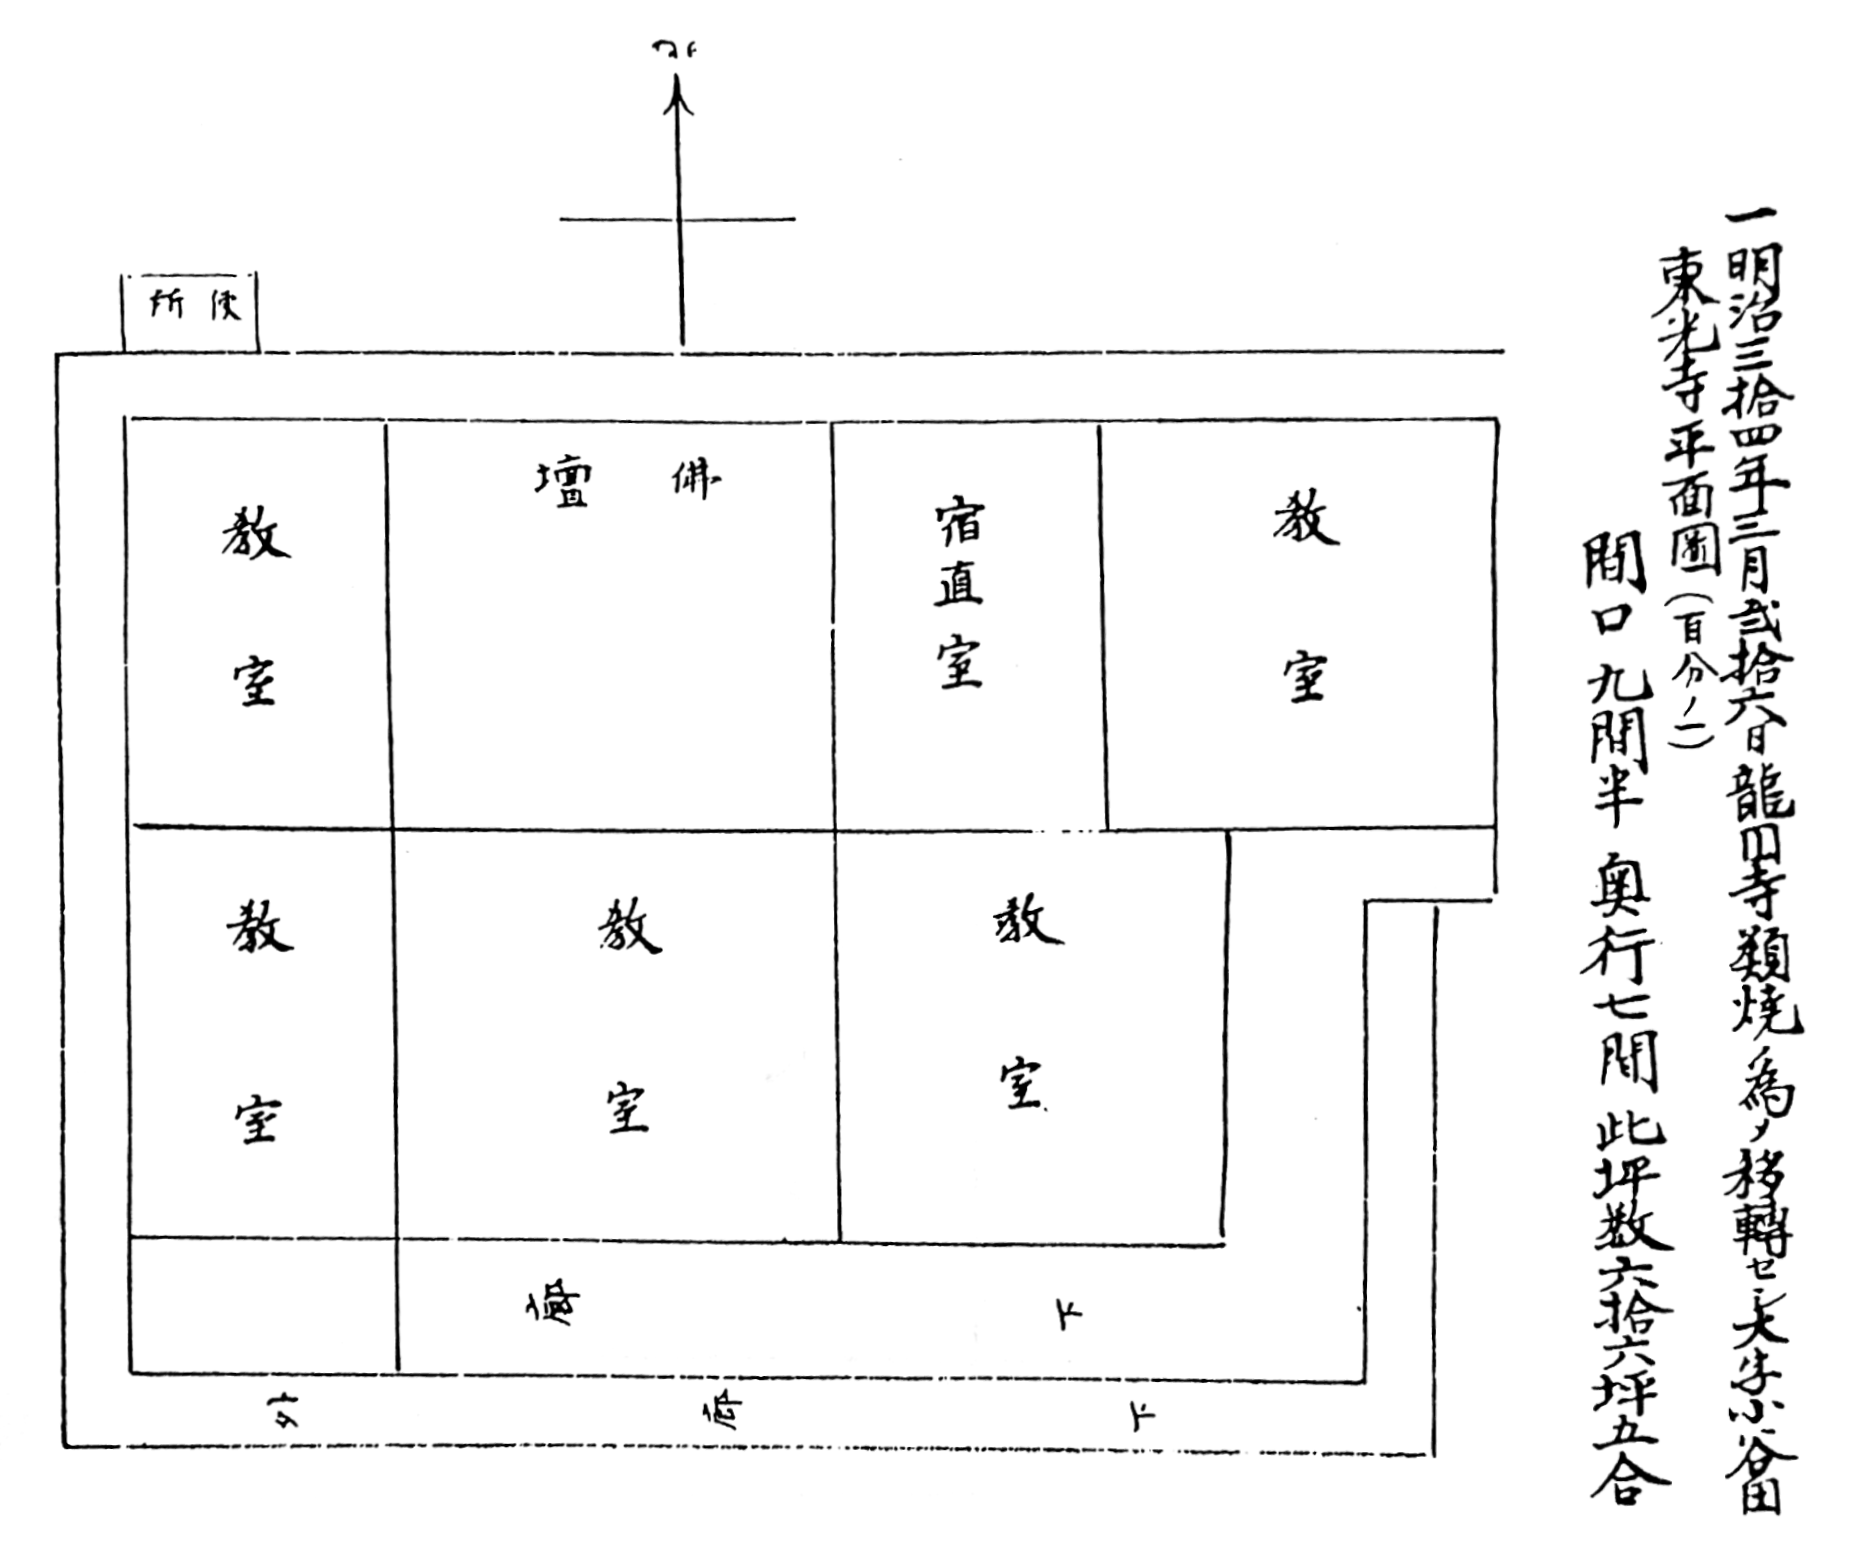 一明治三拾四年三月弐拾六日龍円寺類焼為ノ移轉セシ大字小谷田
東光寺平面圖(百分ノ一)
間口九間半 奥行七間 此坪数六拾六坪五合
北
便所
教室
宿直室
佛壇
教室
教室
教室
教室
廊下
外廊下